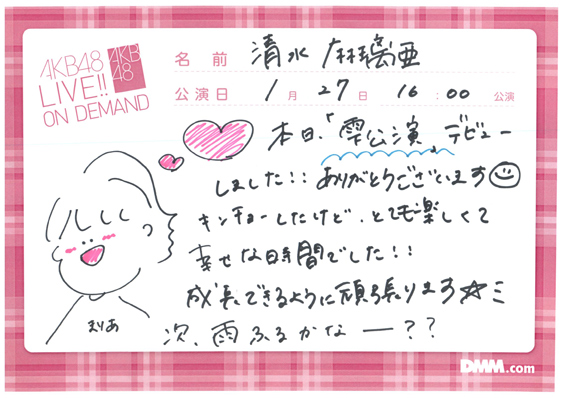 AKB48
LIVE!!
ON DEMAND
AKB
48
名前 清水 麻璃亜
公演日 1月27日 16:00公演
本日、「雫公演」デビュー
しました!!ありがとうございます
キンチョーしたけど、とても楽しくて
幸せな時間でした!!
成長できるように頑張ります☆ミ
次、雨ふるかなー??
まりあ
DMM.com